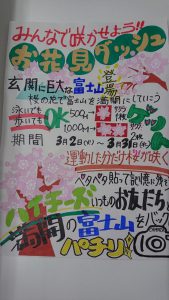 みんなで咲かせよう!!
お花見ダッシュ
登場
玄関に巨大な富士山
桜の花で富士山を満開にしていこう
泳いでも
歩いても
OK
500m→
1000m→
ゲット
期間 3月2日(月)~3月31日(火)
運動した分だけ桜が咲く
ペタペタ貼って
ハイチーズ
いつものお友だちと
満開の富士山
をバック
パチーリ